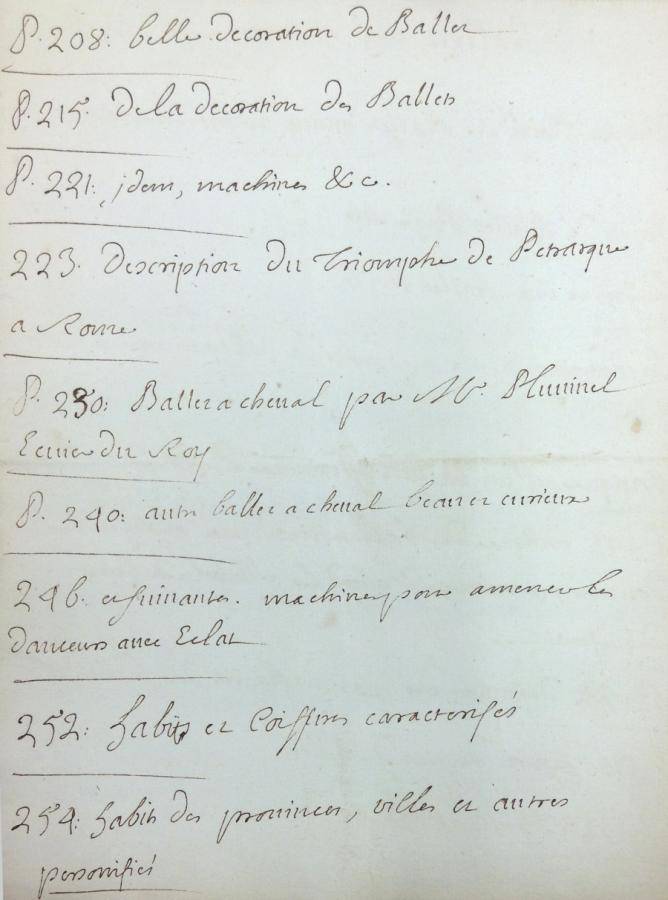 P. 208: belle decoration de Ballet
P. 215. de la decoration des Ballets
P. 221: jdem, machines &c.
223. description du Triomphe de Petrarque
a Rome
P. 230: Ballet a cheval par Mr. Pluvinel
Ecuier du Roy
P. 240: autre ballet a cheval beau et curieux
246. et suivantes. machines pour amener les
danceurs avec Eclat
252: habits et Coiffures caracterisés
254: habits des provinces, villes et autres
personifiés